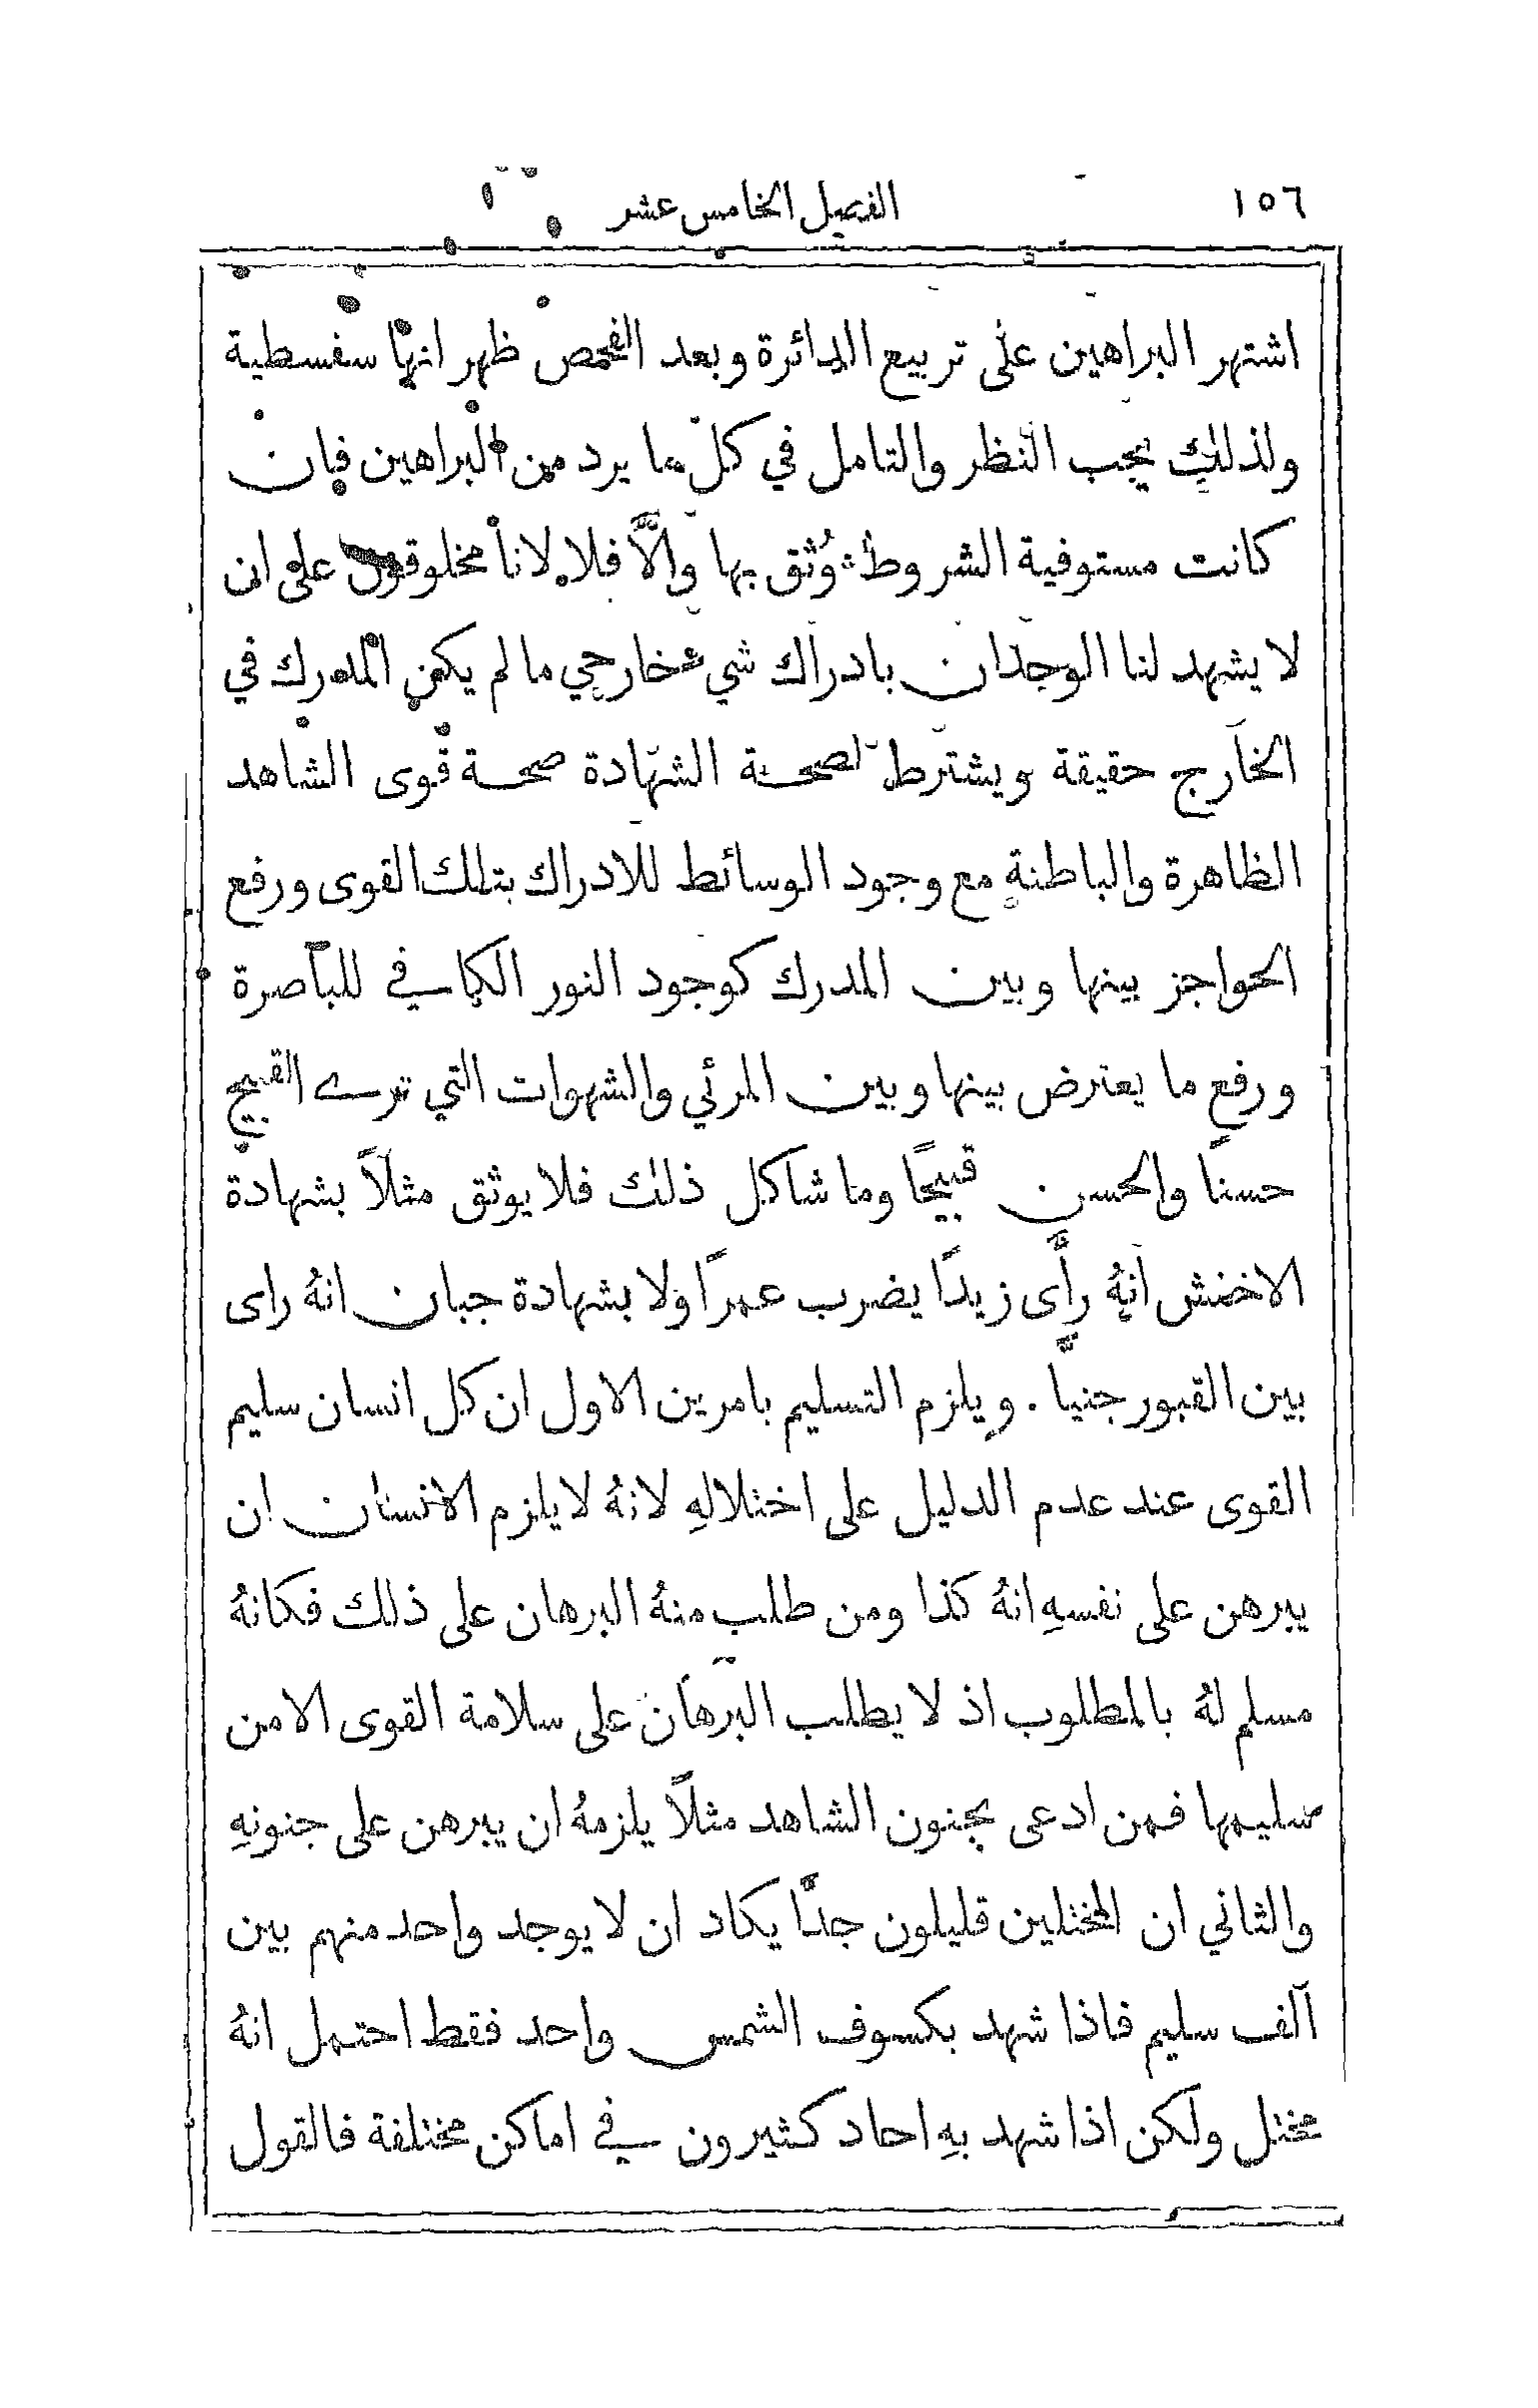 ١٥٦ الفصل الخامس عشر
اشتهر البراهين على تربيع الدائرة وبعد الفحص ظهر انها سفسطية
ولذلك يجب النظر والتامل في كل ما يرد من البراهين فان
كانت مستوفية الشروط وُثق بها والَّا فلا لانا مخلوقون على ان
لا يشهد لنا الوجدان بادراك شيء خارجي ما لم يكن المدرك في
الخارج حقيقة ويشترط لصحة الشهادة صحة قوى الشاهد
الظاهرة والباطنة مع وجود الوسائط للادراك بتلك القوى ورفع
الحواجز بينها وبين المدرك كوجود النور الكافي للباصرة
ورفع ما يعترض بينها وبين المرئي والشهوات التي ترے القبيح
حسنًا والحسن قبيحًا وما شاكل ذلك فلا يوثق مثلًا بشهادة
الاخفش انهُ رأَى زيدًا يضرب عمرًا ولا بشهادة جبان انهُ راى
بين القبور جنيًّا . ويلزم التسليم بامرين الاول ان كل انسان سليم
القوى عند عدم الدليل على اختلالهِ لانهُ لا يلزم الانسان ان
يبرهن على نفسهِ انهُ كذا ومن طلب منهُ البرهان على ذلك فكانهُ
مسلم لهُ بالمطلوب اذ لا يطلب البرهان على سلامة القوى الا من
سليمها فمن ادعى بجنون الشاهد مثلًا يلزمهُ ان يبرهن على جنونهِ
والثاني ان المختلين قليلون جدًّا يكاد ان لا يوجد واحد منهم بين
الف سليم فاذا شهد بكسوف الشمس واحد فقط احتمل انهُ
مختل ولكن اذا شهد بهِ احاد كثيرون في اماكن مختلفة فالقول